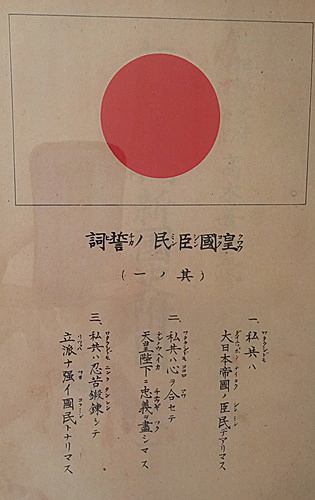 皇國臣民ノ誓詞
(其ノ一)
一、私共ハ
大日本帝國ノ臣民デアリマス
二、私共ハ心ヲ合セテ
天皇陛下ニ忠義ヲ盡シマス
三、私共ハ忍苦鍛錬シテ
立派ナ強イ國民トナリマス